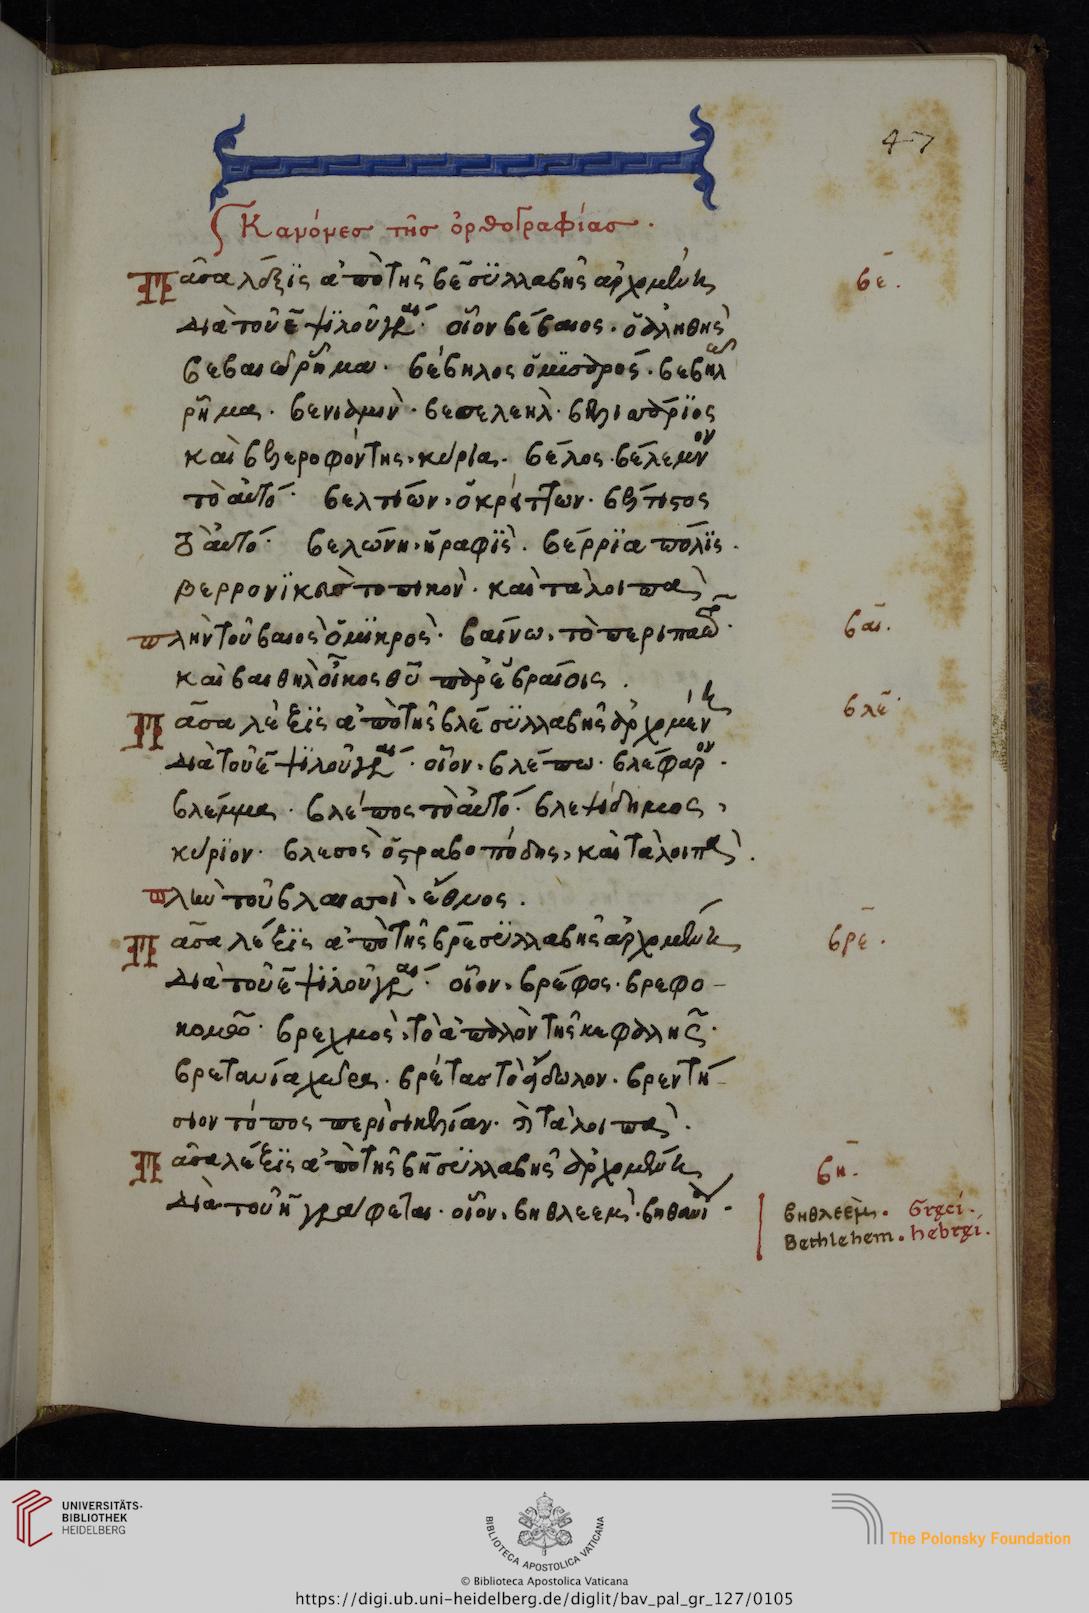 47
Κανόνες τῆς ὀρθογραφίας.
Πᾶσα λέξις ἀπὸ τῆς βε συλλαβῆς ἀρχομένη
βε.
διὰ τοῦ ε ψιλοῦ γράφεται. οἷον βέβαιος. ὁ ἀληθής
βεβαιῶ ῥῆμα. βέβηλος ὁ μισαρός. βεβηλῶ
ῥῆμα. βενιαμίν. βεσελεήλ. βελιάριος
καὶ βελλεροφόντης. κύρια. βέλος. βέλεμνον
τὸ αὐτό. βελτίων. ὁ κρείττων. βέλτιστος
τὸ αὐτό. βελώνη. ἡ ραφίς. βέρροια πόλις.
βερρονίκιος τοπικόν. καὶ τὰ λοιπά
πλὴν τοῦ βαιὸς ὁ μικρός. βαίνω. τὸ περιπατῶ.
βαι.
καὶ βαιθὴλ οἶκος θῦ παρ' ἑβραίοις.
Πᾶσα λέξις ἀπὸ τῆς βλε συλλαβῆς ἀρχομένη
βλε
διὰ τοῦ ε ψιλοῦ γράφεται. οἷον. βλέπω. βλέφαρον.
βλέμμα. βλέπος τὸ αὐτό. βλεψίδημος,
κύριον. βλεσὸς ὁ στραβοπόδης, καὶ τὰ λοιπά.
πλὴν τοῦ βλαιποὶ. ἔθνος.
Πᾶσα λέξις ἀπὸ τῆς βρε συλλαβῆς ἀρχομένη
βρε.
διὰ τοῦ ε ψιλοῦ γράφεται. οἷον. βρέφος. βρεφο-
κομῶ. βρεχμός, τὸ ἁπαλὸν τῆς κεφαλῆς.
βρετανία χώρα. βρέτας τὸ εἴδωλον. βρεντή-
σιον τόπος περὶ σικελίαν. καὶ τὰ λοιπά.
Πᾶσα λέξις ἀπὸ τῆς βη συλλαβῆς ἀρχομένη
βη.
διὰ τοῦ η γράφεται. οἷον. βηθλεέμ. βηθανία.
βηθλεέμ. Gręci.
Bethlehem. hebręi.
UNIVERSITÄTS-
BIBLIOTHEK
HEIDELBERG
BIBLIOTECA APOSTOLICA VATICANA
The Polonsky Foundation
© Biblioteca Apostolica Vaticana
https://digi.ub.uni-heidelberg.de/diglit/bav_pal_gr_127/0105